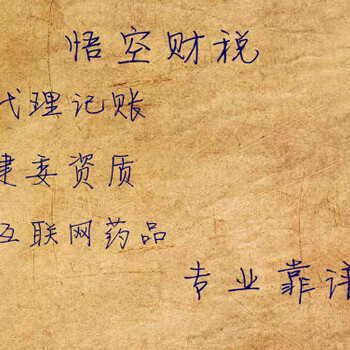 悟空财税
代理记账
建委资质
互联网药品
专业靠谱